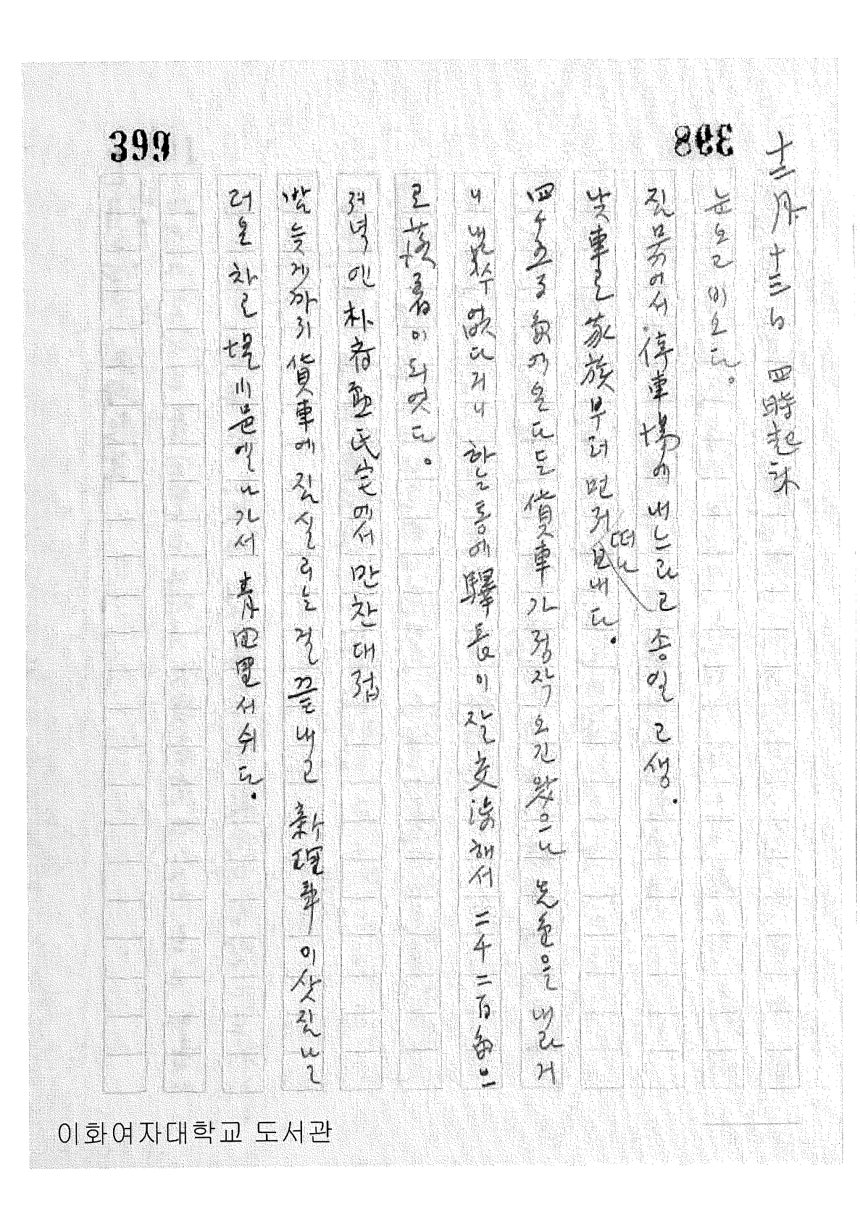 398
399
十二月 十三日 四時起床
눈오고 비오다.
짐묶어서 停車場에 내느라고 종일 고생.
낮車로 家族부터 먼저 떠나보내다.
四千五百 에 온다든 貨車가 정작 오긴 왔으나 先金을 내라거
니 낼수 없다거니 하는 통에 驛長이 잘 交涉해서 二千二百 으
로 落着이 되엿다.
저녁엔 朴 氏宅에서 만찬대접
밤 늦게까지 貨車에 짐실리는걸 끝내고 이삿짐날
러온 차로 邑에 나가서 靑 서 쉬다.
이화여자대학교 도서관